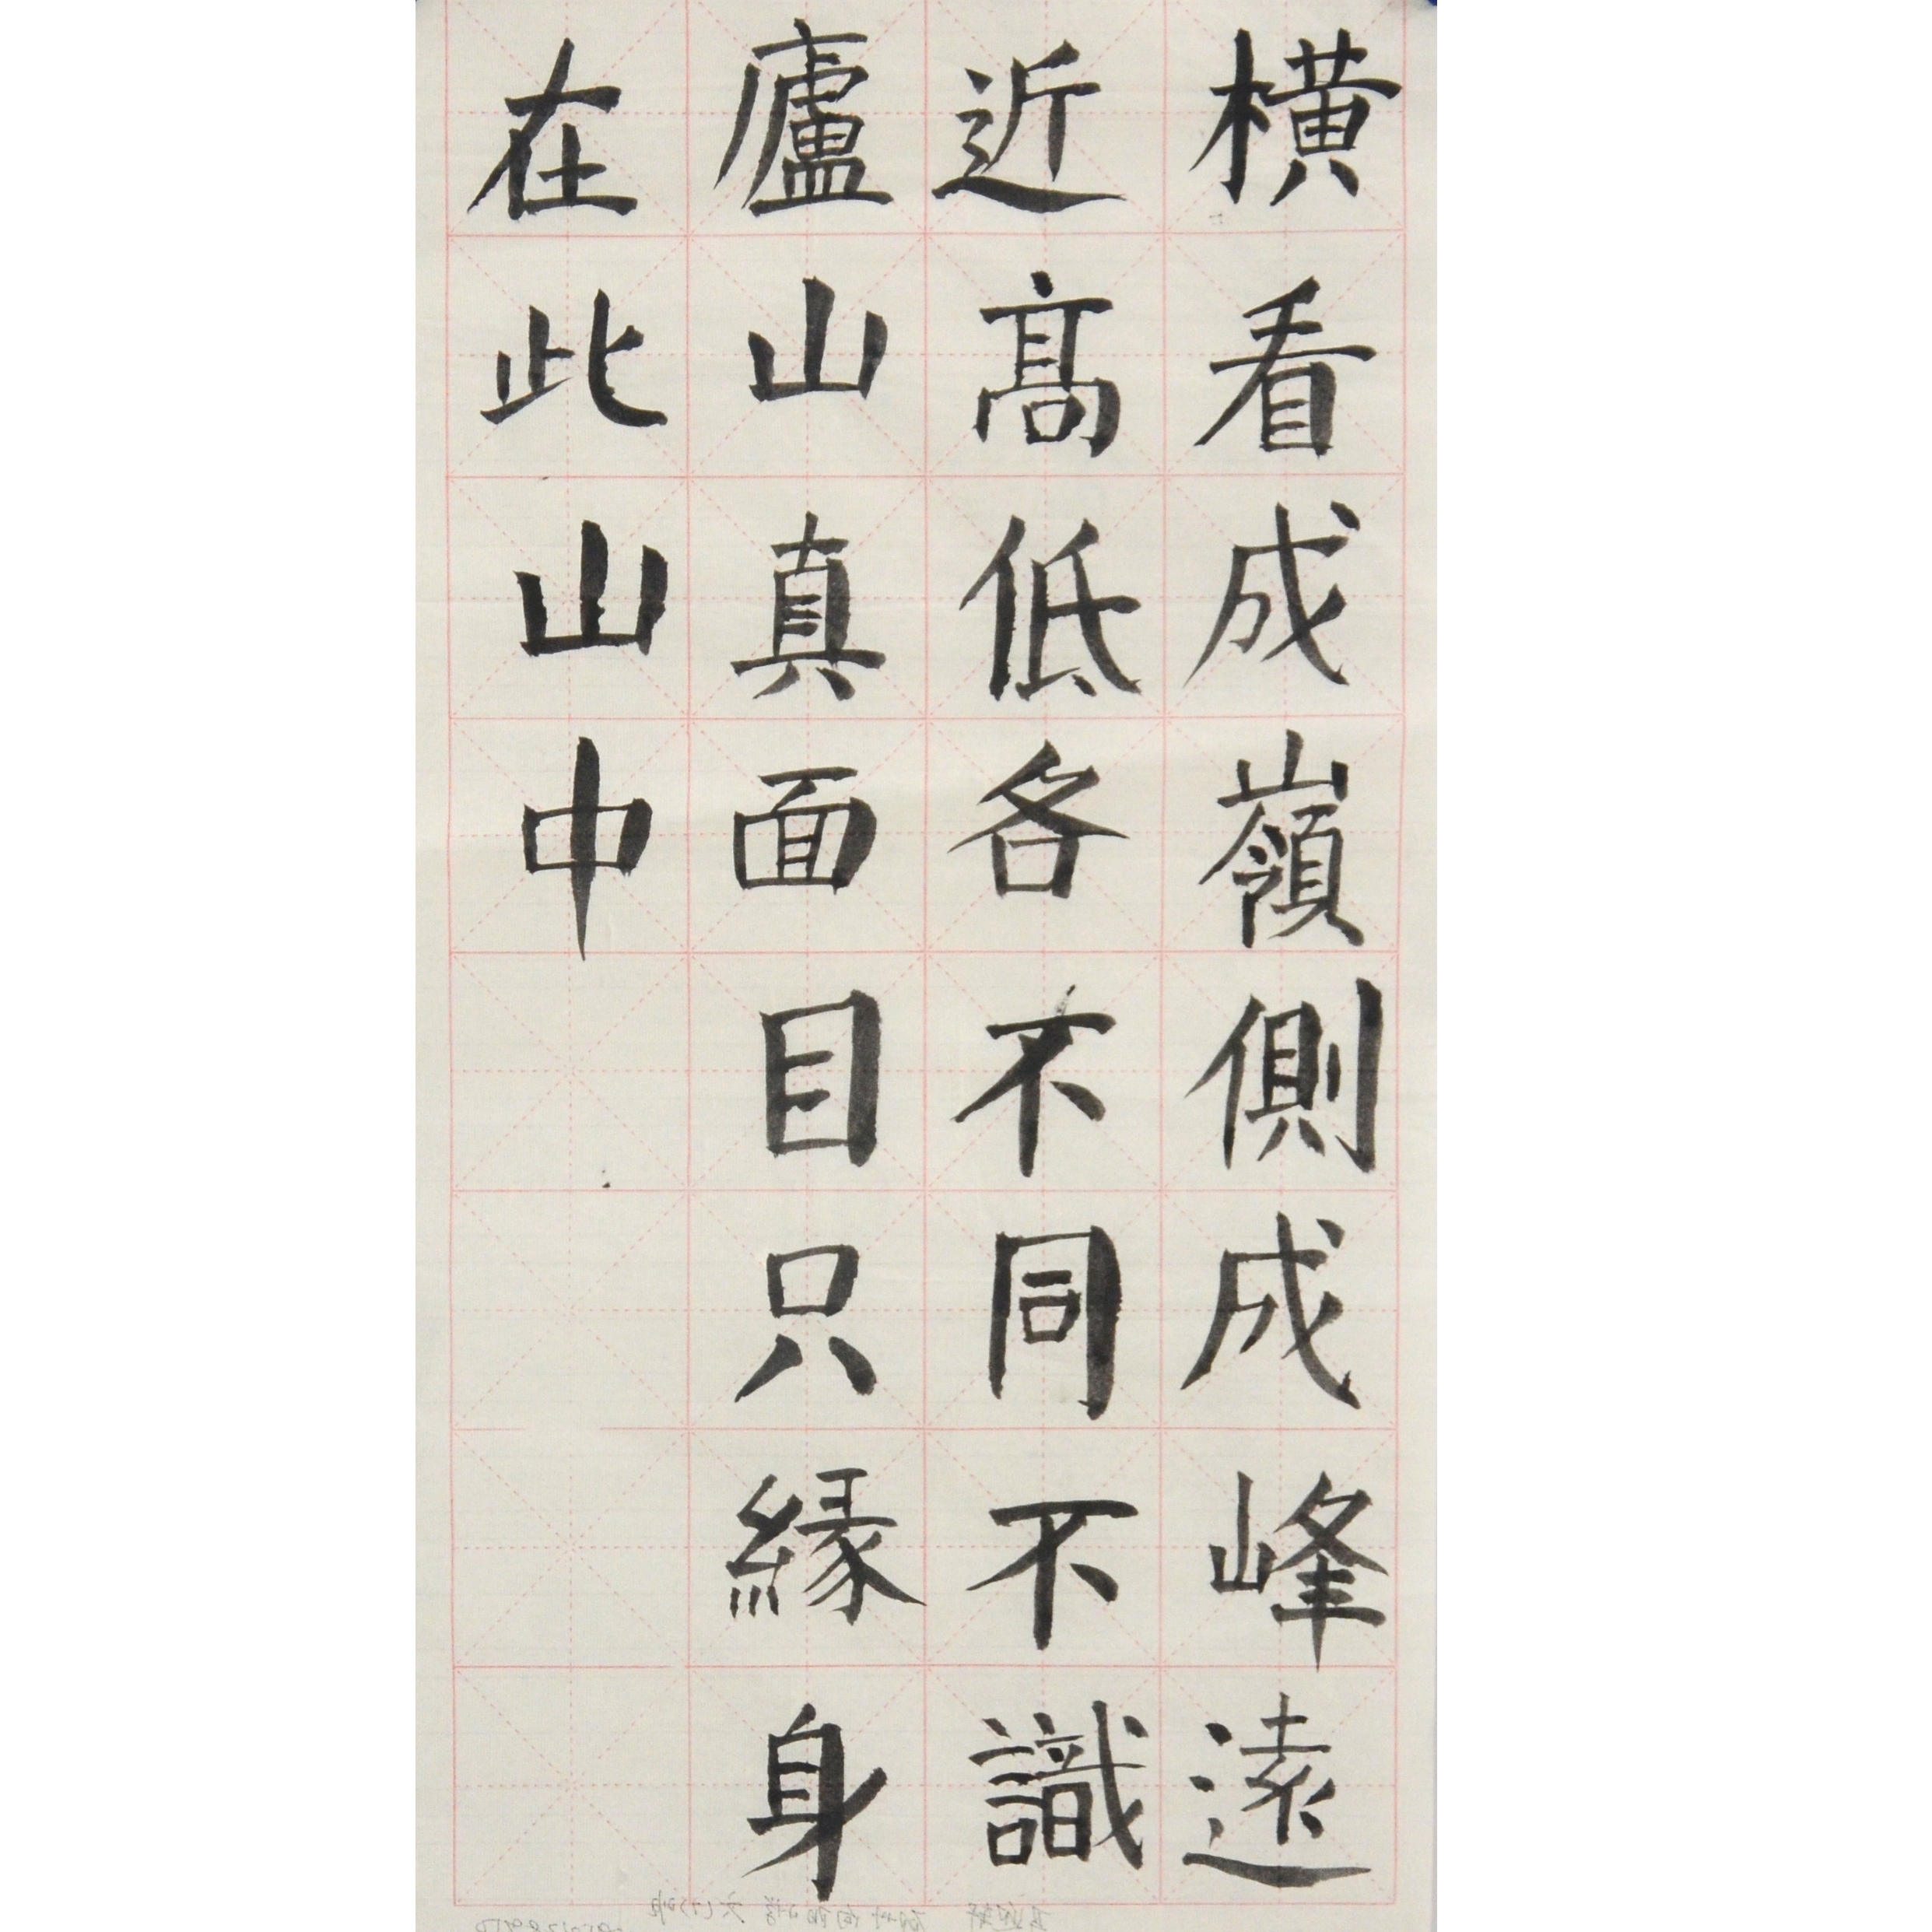 橫看成嶺側成峰遠
近髙低各不同不識
廬山真面目只緣身
在此山中